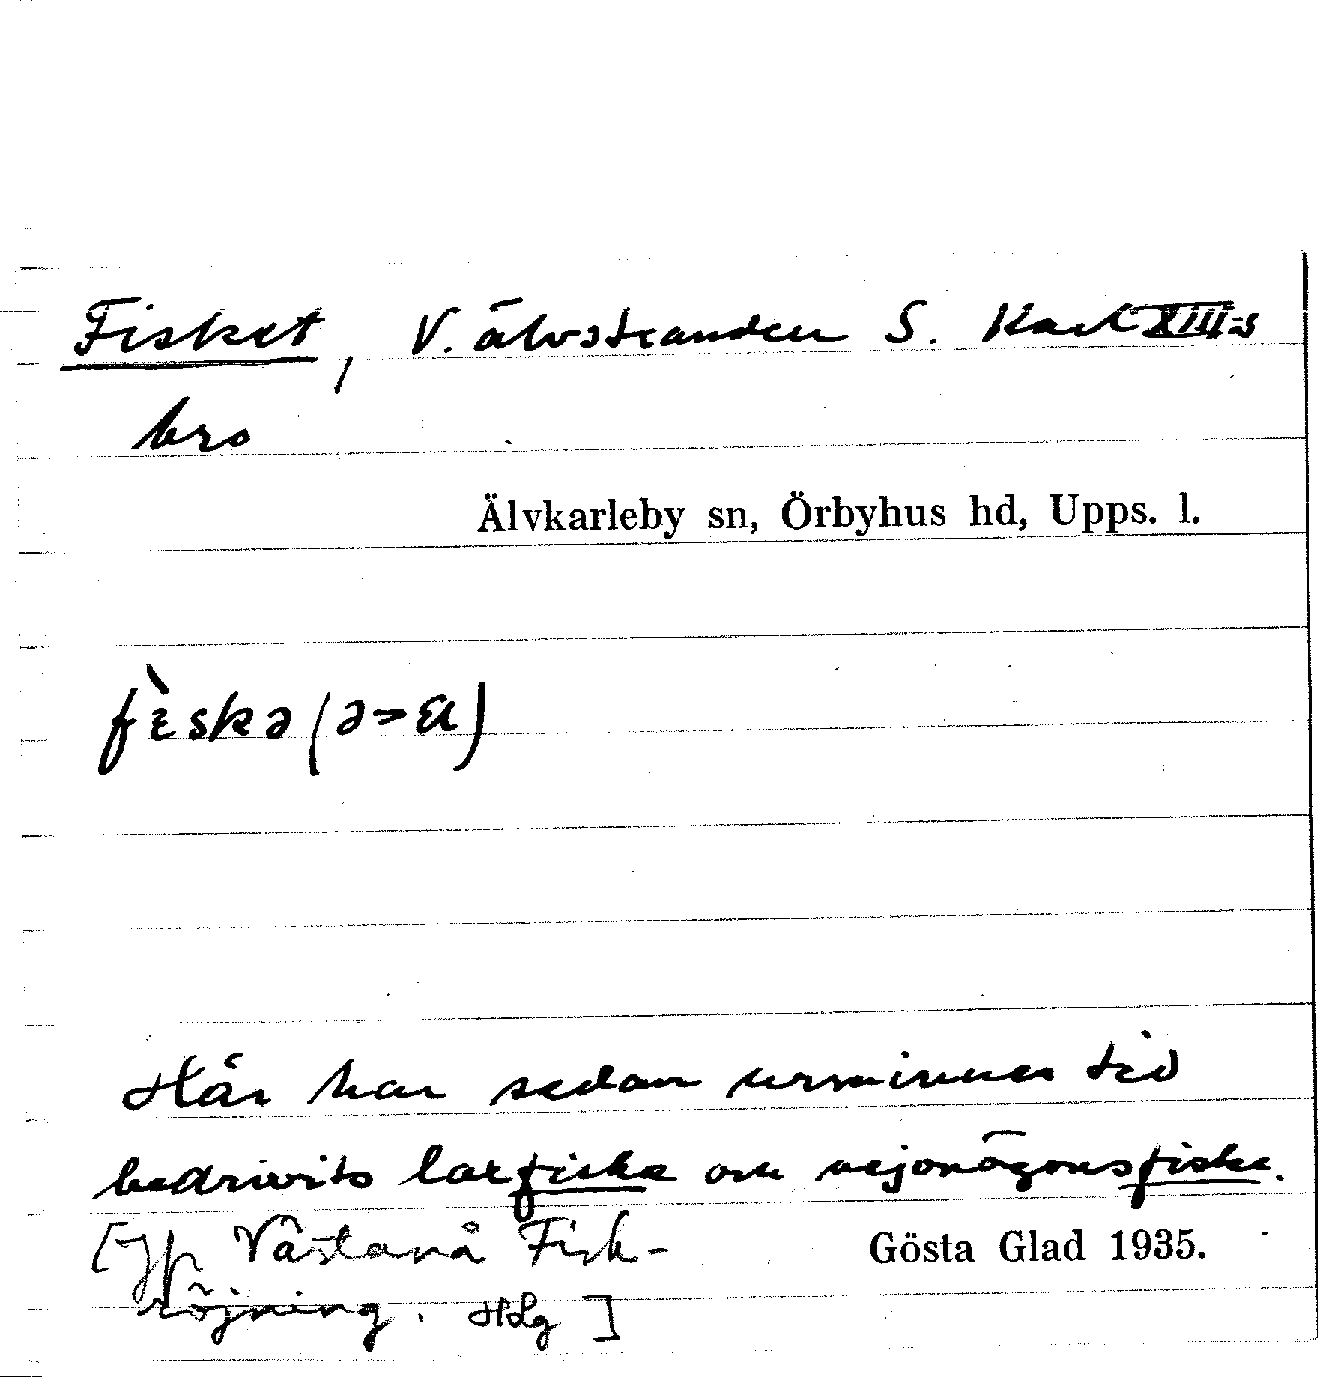 Fisket, V. älvstranden S. Karl XIII-s
bro
Älvkarleby sn, Örbyhus hd, Upps. l.
fɛ̀skə (ə->a)
Här har sedan urminnes tid
bedrivits laxfiske och nejonögonsfiske.
[Jfr Västanå Fisk-
Gösta Glad 1935.
röjning. HLg ]